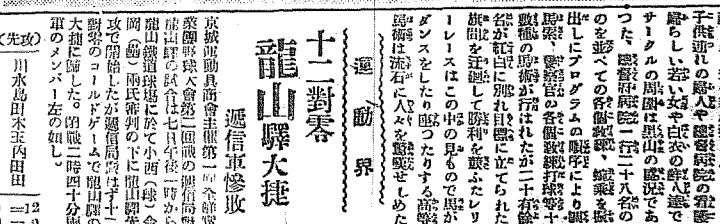 子供連れの婦人や総督府病院の看護
婦らしい若い女や白衣の鮮人達で
サークルの周囲は黒山の盛況であ
つた、総督府病院一行二十八名の
のを並べての各個教練、
出しにプログラムの順序により
馬索、警察官の各個教練打毬等十
数種の馬術が行はれたが二十有余
名が紅白に別れ目標に立てられた
旗間を迂廻して勝利を競ふたレリ
ーレースはこの中の見もので馬が
ダンスをしたり座つたりする高等
馬術は流石に人々を驚嘆せしめた
運動界
十二對零
龍山驛大捷
遞信軍惨敗
京城運動具商會主催第一回全鮮實
業團野球大會第二回戰の遞信局對
龍山驛の試合は七日午後一時から
龍山鐵道球場に於て小西(球)金
岡(壘)兩氏審判の下に龍山驛先
攻で開始したが遞信局振はず十二
對零のコールドゲームで龍山驛の
大捷に歸した。閉戰二時四十分兩
軍のメンバー左の如し。
(攻先)
川水島田木玉內田田